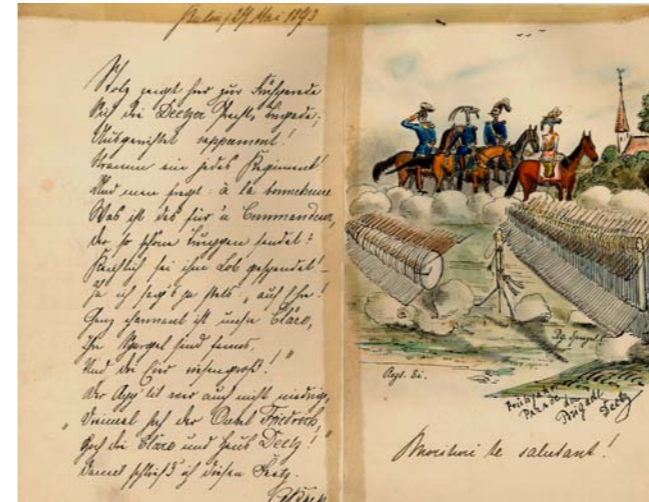 Berlin, Mai 1893
Stolz zeigt hier zur
Sich die Deetzer
Ausgerüstet
Stramm ein jedes Regiment!
Und man fragt: à la bonneheure
Was ist das für 'n Commandeur,
Der so schöne Truppen sendet?
Reichlich sei ihm Lob gespendet –
Ja ich sag's ja stets, auf Ehre!
Ganz charmant ist unsre Cläre,
Ihr Spargel sind famos,
Und die Eier riesengroß!"
Der App'tit war auch nicht niedrig,
"Dreimal hoch der Onkel Friedrich,
Hoch die Cläre und Haus Deetz!"
Damit schließ' ich diesen
Rg. Spargel
Regt. Ei.
Frühjahrs
Parade der
Brigade Deetz
Morituri te salutant!